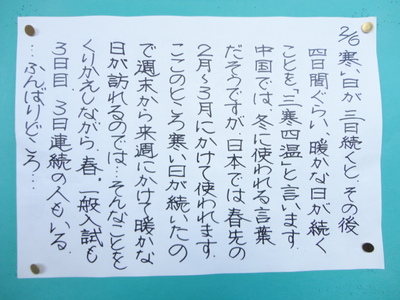 2/6 寒い日が三日続くと、その後
四日間ぐらい、暖かな日が続く
ことを「三寒四温」と言います.
中国では、冬に使われる言葉
だそうですが、日本では春先の
2月〜3月にかけて使われます.
ここのところ寒い日が続いたの
で週末から来週にかけて暖かな
日が訪れるのでは…そんなことを
くりかえしながら、春。一般入試も
3日目 3日連続の人もいる.
…ふんばりどころ…